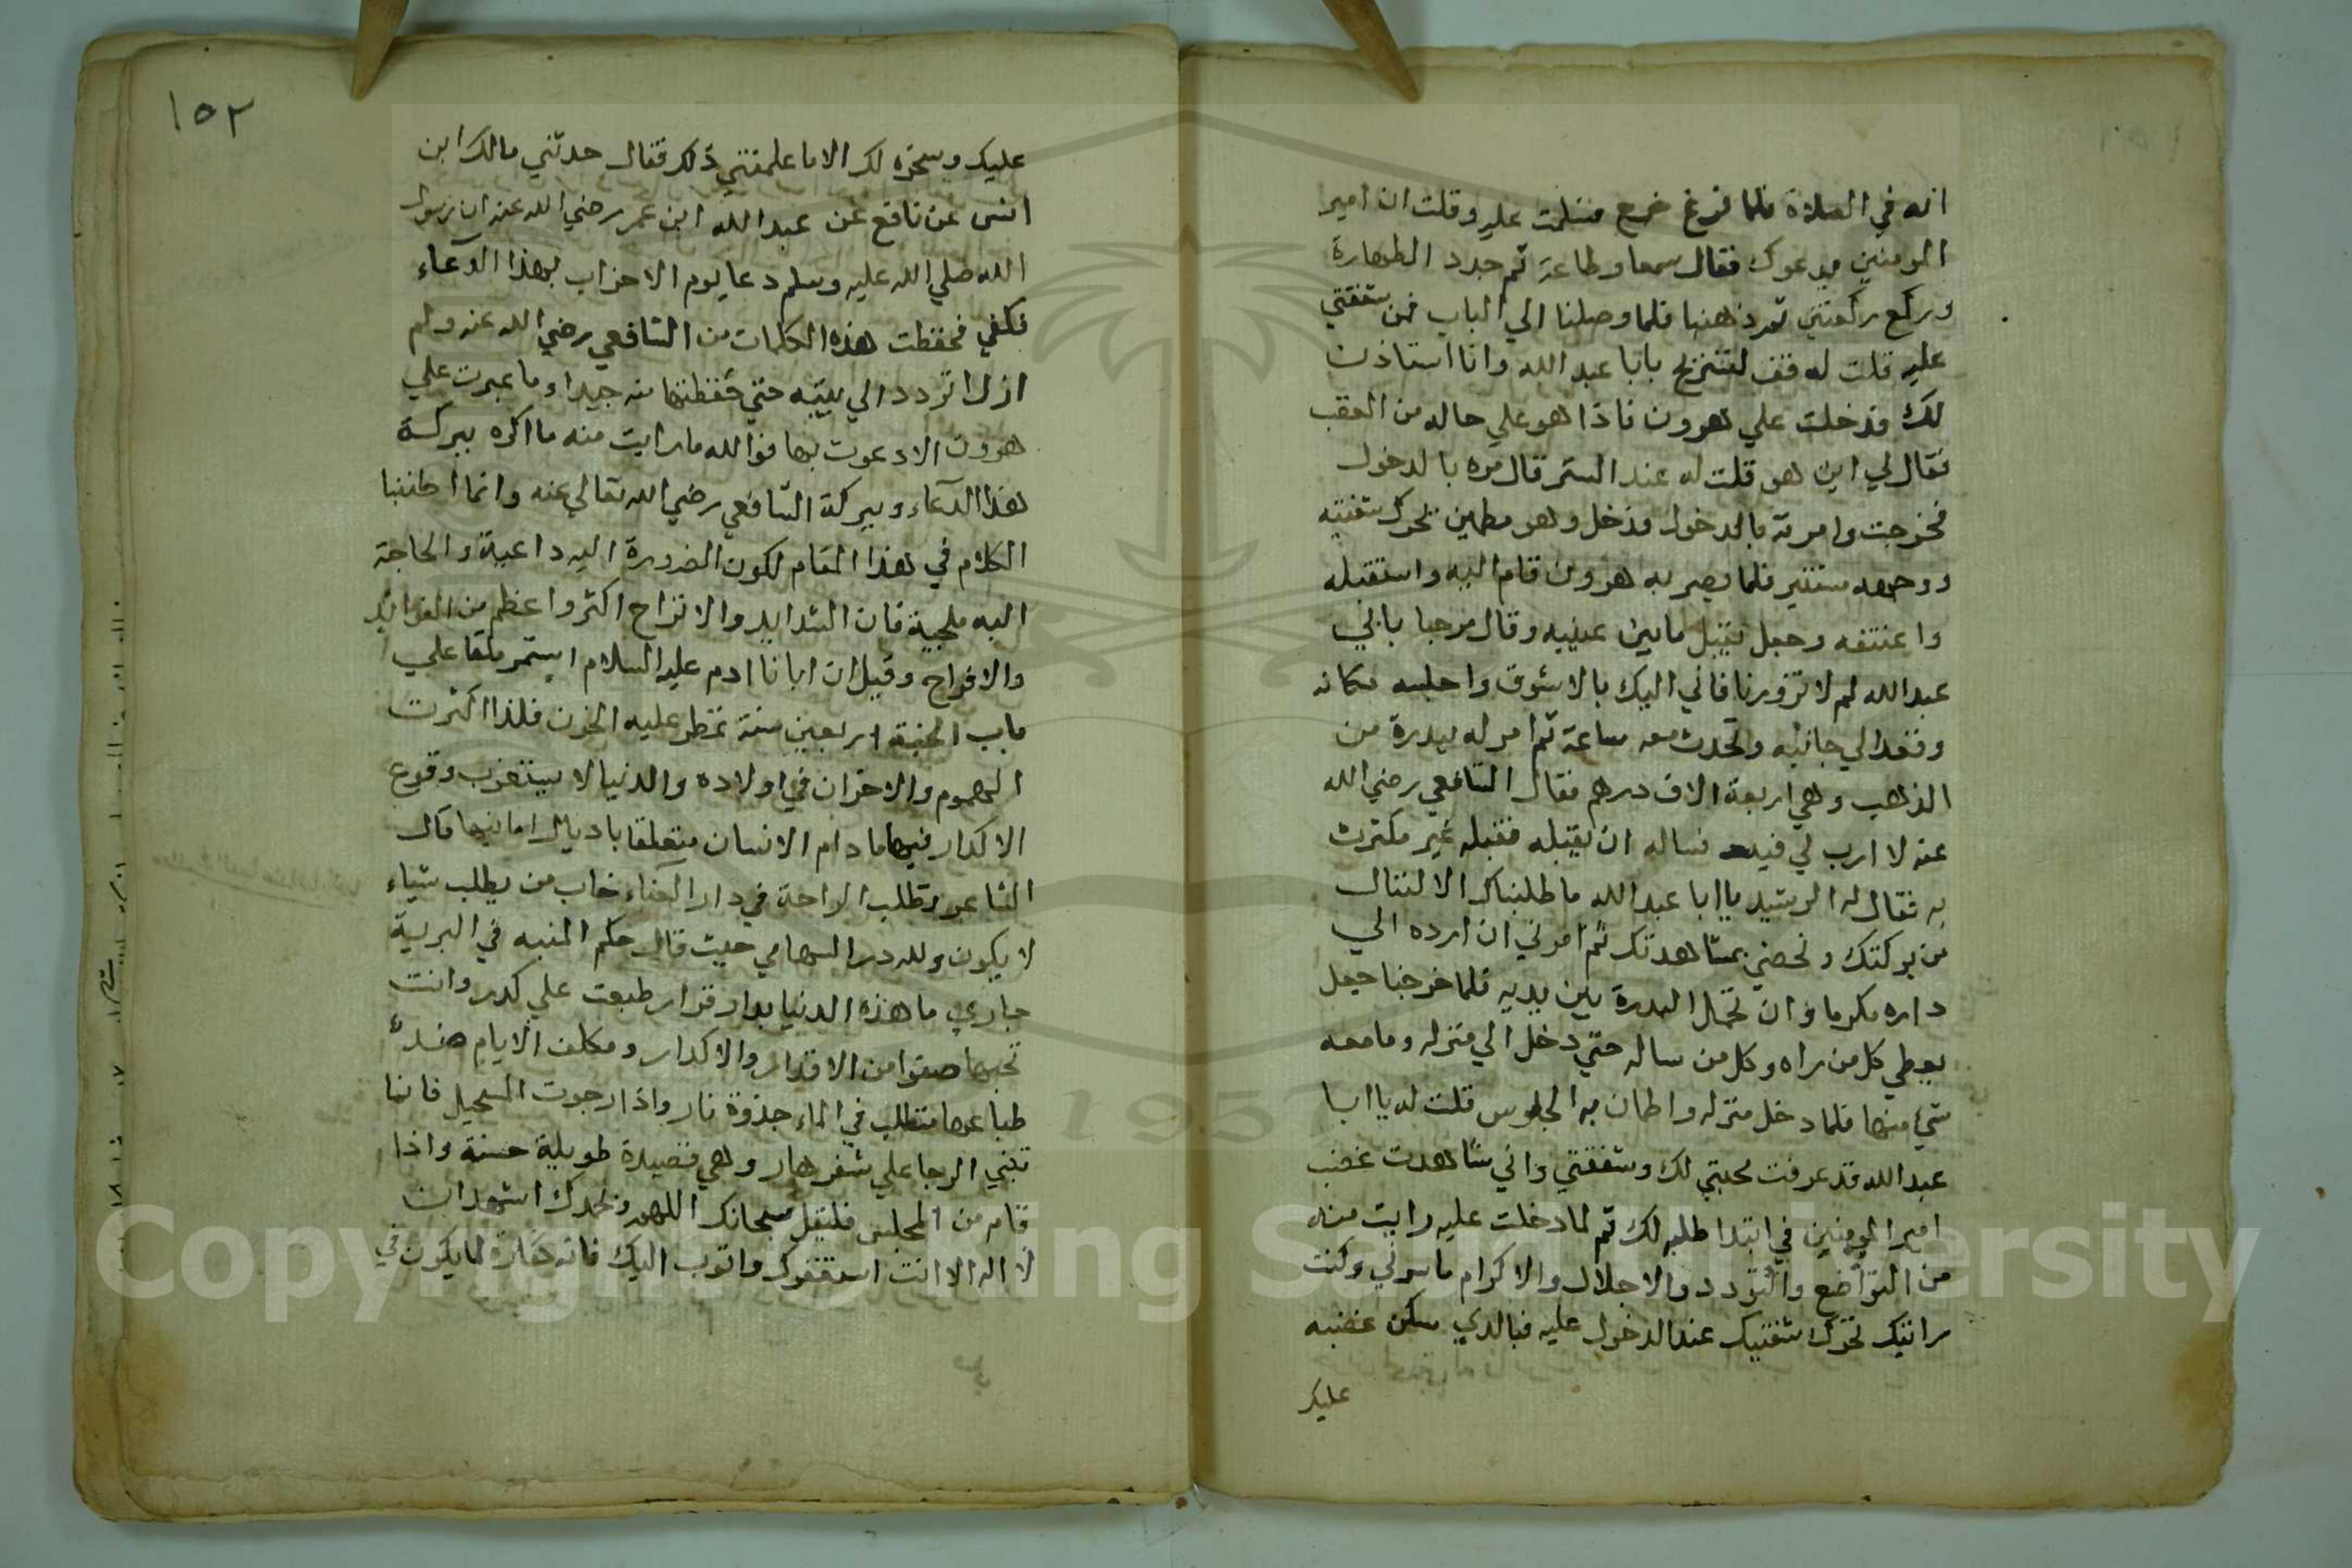 انه في الصلاة فلما فرغ خرج فسلمت عليه وقلت ان امير
المومنين يدعوك فقال سمعا وطاعة ثم جدد الطهارة
وركع ركعتين ثم ذهبنا فلما وصلنا الي الباب فمن شفقتي
عليه قلت له قف لتستريح يابا عبد الله وانا استاذن
لك فدخلت علي هرون فاذا هو علي حاله من الغضب
فقال لي اين هو قلت له عند الستر قال مره بالدخول
فخرجت وامرته بالدخول فدخل وهو مطمين تحرك شفتيه
ووجهه مستنير فلما بصر به هرون قام اليه واستقبله
واعتنقه وجعل يقبل مابين عينيه وقال مرحبا بابي
عبد الله لم لا تزورنا فاني اليك بالاشوق واجلسه مكانه
وقعد الي جانبه وتحدث معه ساعة ثم امر له ببدرة من
الذهب وهي اربعة الاف درهم فقال الشافعي رضي الله
عنه لا ارب لي فيه فساله ان يقبله فقبله غير مكترث
به فقال له الرشيد ياابا عبد الله ما طلبناك الا لننال
من بركتك ونحضي بمشاهدتك ثم امرني ان ارده الي
داره مكرما وان تحمل البدرة بين يديه فلما خرجنا جعل
يعطي كل من راه وكل من ساله حتي دخل الي منزله ومامعه
شي منها فلما دخل منزله واطمان به الجلوس قلت له ياابا
عبد الله قد عرفت محبتي لك وشفقتي واني شاهدت غضب
امير المومنين في ابتدا طلبه لك ثم لما دخلت عليه رايت منه
من التواضع والتودد والاجلال والاكرام ماسرني وكنت
رايتك تحرك شفتيك عند الدخول عليه فبالذي سكن غضبه
عليك
١٥٢
عليك وسخره لك الا ما علمتني ذلك فقال حدثني مالك ابن
انس عن نافع عن عبد الله ابن عمر رضي الله عنه ان رسول
الله صلي الله عليه وسلم دعا يوم الاحزاب بهذا الدعاء
فكفي فحفظت هذه الكلمات من الشافعي رضي الله عنه ولم
ازل اتردد الي بيته حتي حفظتها منه جيدا وما عبرت علي
هرون الا دعوت بها فوالله مارايت منه مااكره ببركة
هذا الدعاء وبركة الشافعي رضي الله تعالي عنه وانما اطنبنا
الكلام في هذا المقام لكون الضرورة اليه داعية والحاجة
اليه ملجية فان الشدايد والاتراح اكثر واعظم من الفوايد
والافراح وقيل ان ابانا ادم عليه السلام استمر ملقا علي
باب الجنة اربعين سنة تمطر عليه الحزن فلذا اكثرت
الهموم والاحزان في اولاده والدنيا لا يستغرب وقوع
الاكدار فيها مادام الانسان متعلقا باذيال امانيها قال
الشاعر تطلب الراحة في دار العناء خاب من يطلب شياء
لا يكون ولله در التهامي حيث قال حكم المنيه في البرية
جاري ما هذه الدنيا بدار قرار طبعت علي كدر وانت
تحبها صفوا من الاقدار والاكدار ومكلف الايام ضد
طباعها متطلب في الماء جذوة نار واذا رجوت المستحيل فانما
تبني الرجا علي شفير هار وهي قصيدة طويلة حسنة واذا
قام من المجلس فليقل سبحانك اللهم وبحمدك اشهد ان
لا اله الا انت استغفرك واتوب اليك فانه كفارة لما يكون في
1957
Copyright © King Saud University